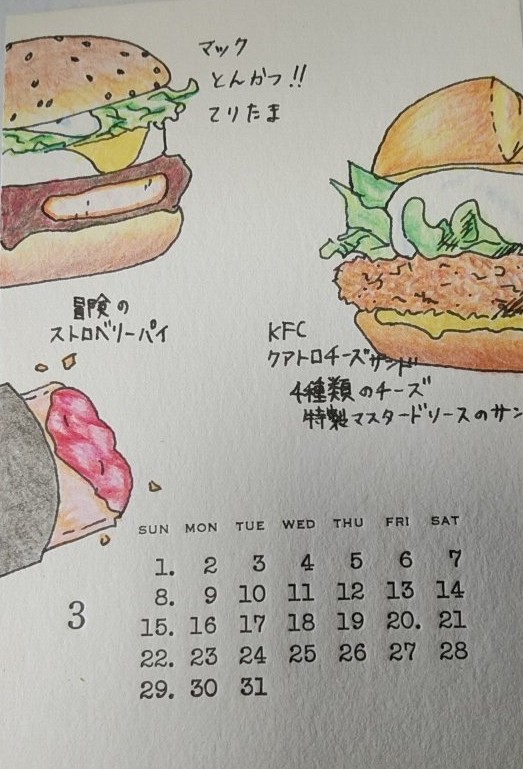 マック
とんかつ!!
てりたま
冒険の
ストロベリーパイ
KFC
クアトロチーズサンド
4種類のチーズ
特製マスタードソースのサン
3
SUN MON TUE WED THU FRI SAT
1. 2 3 4 5 6 7
8. 9 10 11 12 13 14
15. 16 17 18 19 20. 21
22. 23 24 25 26 27 28
29. 30 31